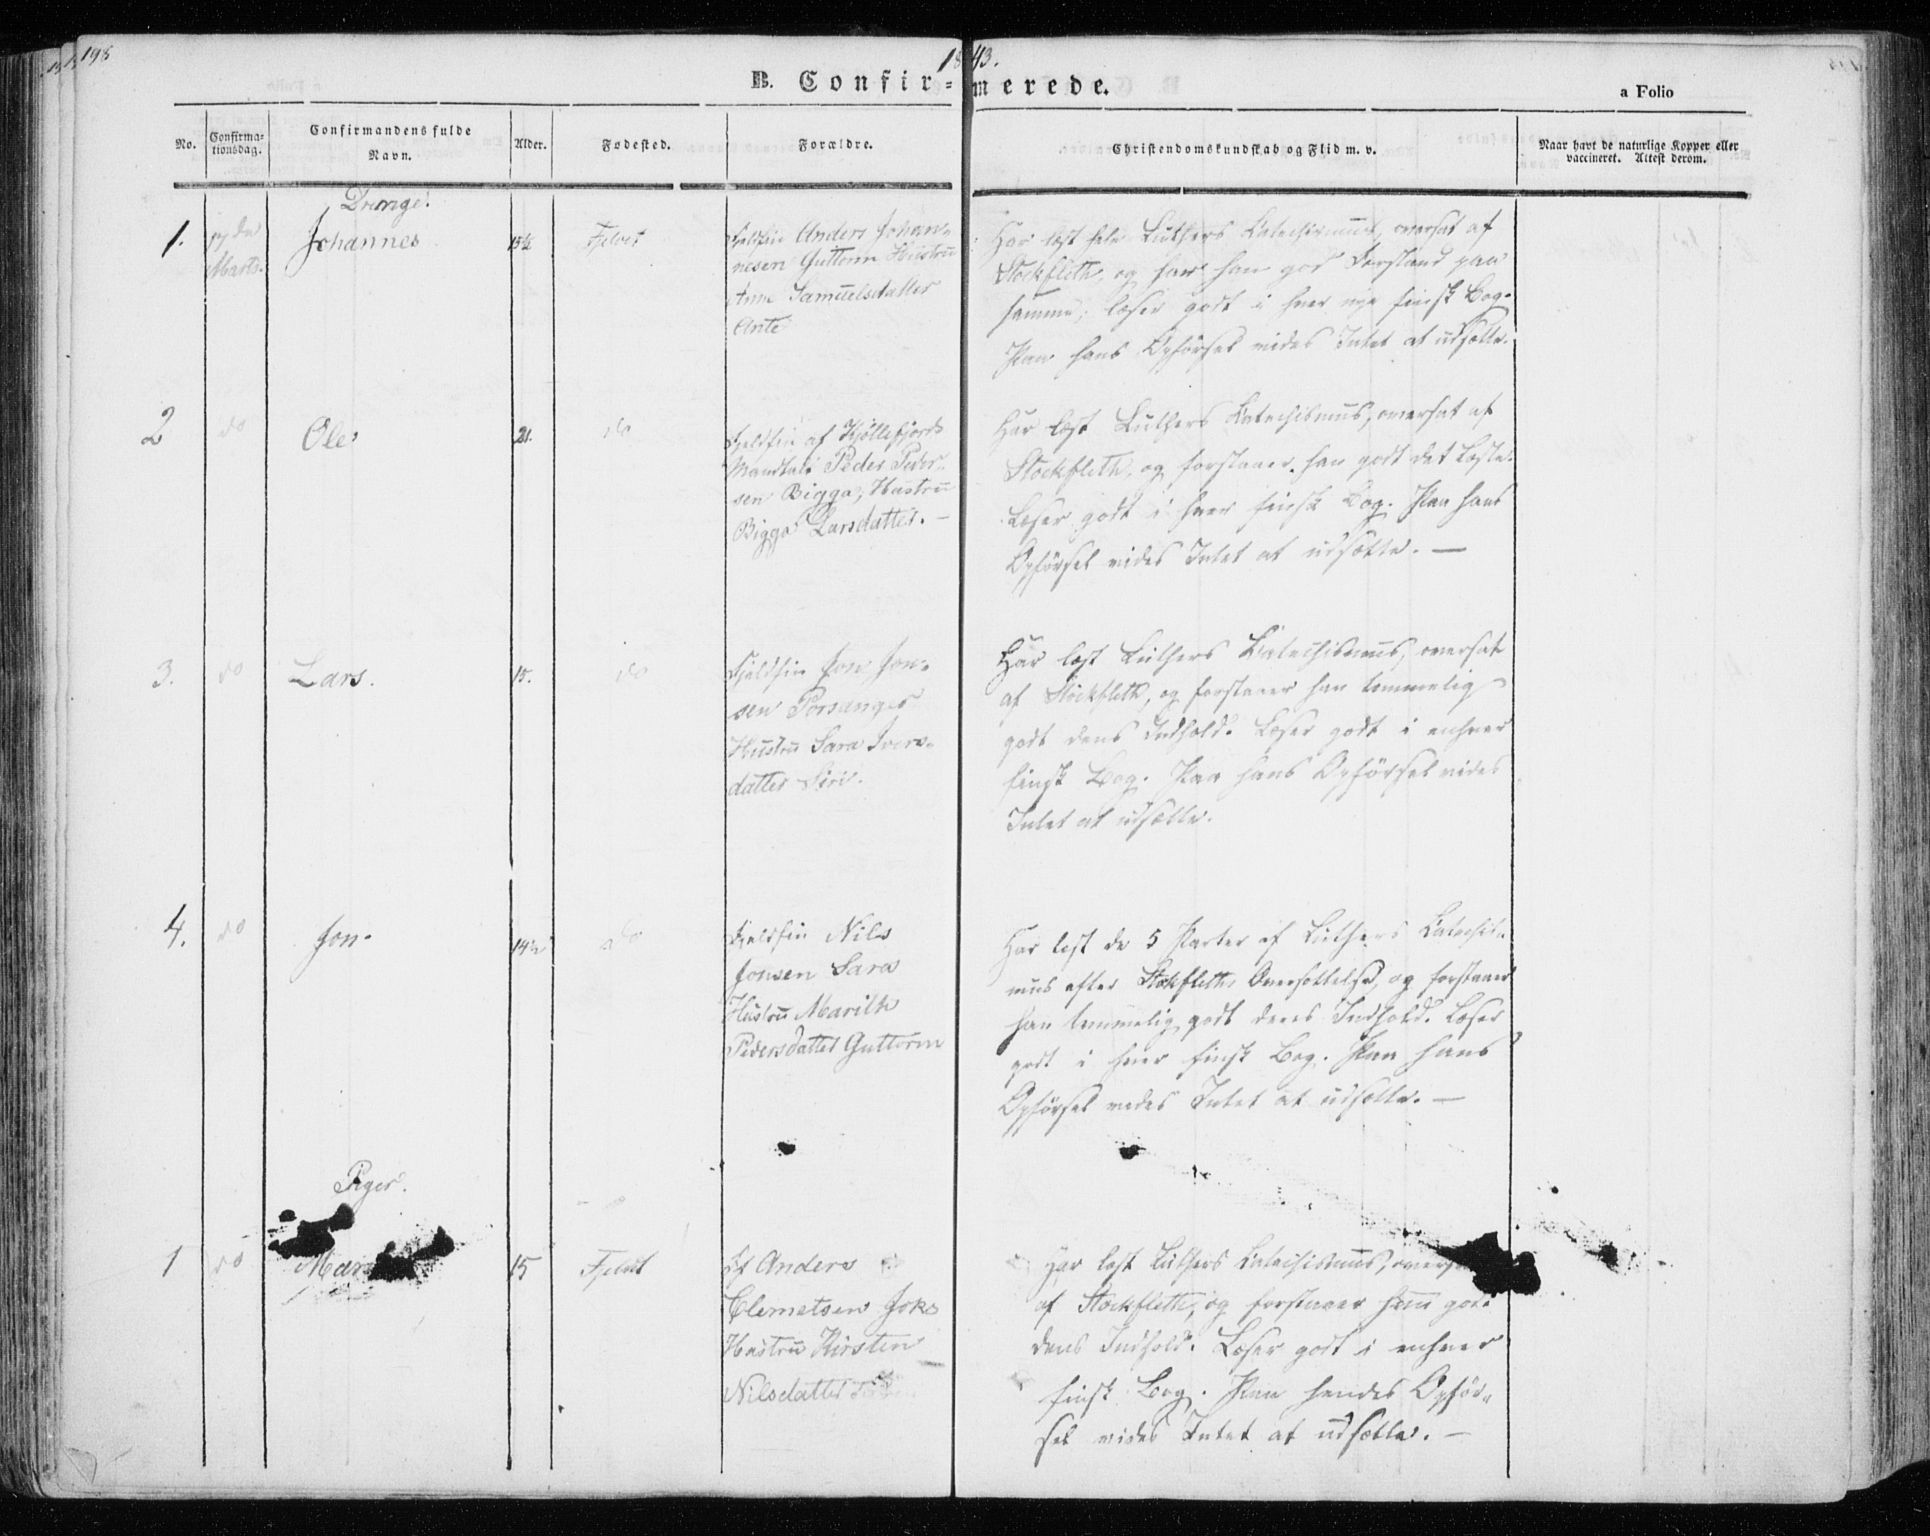 198
1843.
B. Confir-merede.
a Folio
No.
Confirma-
tionsdag.
Confirmandens fulde
Navn.
Alder.
Fødested.
Forældre.
Christendomskundskab og Flid m. v.
Naar havt de naturlige Kopper eller
vaccineret. Attest derom.
Drenge.
1.
17 de
Marts.
Johannes
15½
Fjeldet
Fjeldfin Anders Johan-
nesen Guttorm Hustru
Anne Samuelsdatter
Ante
Har læst hele Luthers Catechismus, oversat af
Stockfleth, og har han god Forstand paa
samme; læser godt i hver nye finsk Bog.
Paa hans Opførsel vides Intet at udsætte.
2
do
Ole
21.
do
Fjeldfin af Kjøllefjords
Mandtal Peder Peder-
sen Bigga, Hustru
Bigga Larsdatter. -
Har læst Luthers Catechismus, oversat af
Stockfleth, og forstaaer han godt det Læste.
Læser godt i hver finsk Bog. Paa hans
Opførsel vides Intet at udsætte. -
3.
do
Lars.
15.
do
Fjeldfin Jon Jon-
sen Porsanger
Hustru Sara Ivers-
datter Siri.
Har læst Luthers Catechismus, oversat
af Stockfleth, og forstaaer han temmelig
godt dens Indhold. Læser godt i enhver
finsk Bog. Paa hans Opførsel vides
Intet at udsætte.
4.
do
Jon.
14½
do
Fjeldfin Nils
Jonsen Sara
Hustru Marith
Pedersdatter Guttorm
Har læst de 5 Parter af Luthers Catechis-
mus efter Stockfleths Oversættelse, og forstaaer
han temmelig godt deres Indhold. Læser
godt i hver finsk Bog. Paa hans
Opførsel vides Intet at udsætte. -
Piger.
1
do
Mar
15
Fjeldet
Ff Anders
Clemetsen Joks
Hustru Kirsten
Nilsdatter
Har læst Luthers Catechismus, overs
af Stockfleth, og forstaaer hun godt
dens Indhold. Læser godt i enhver
finsk Bog. Paa hendes Opfør-
sel vides Intet at udsætte. -